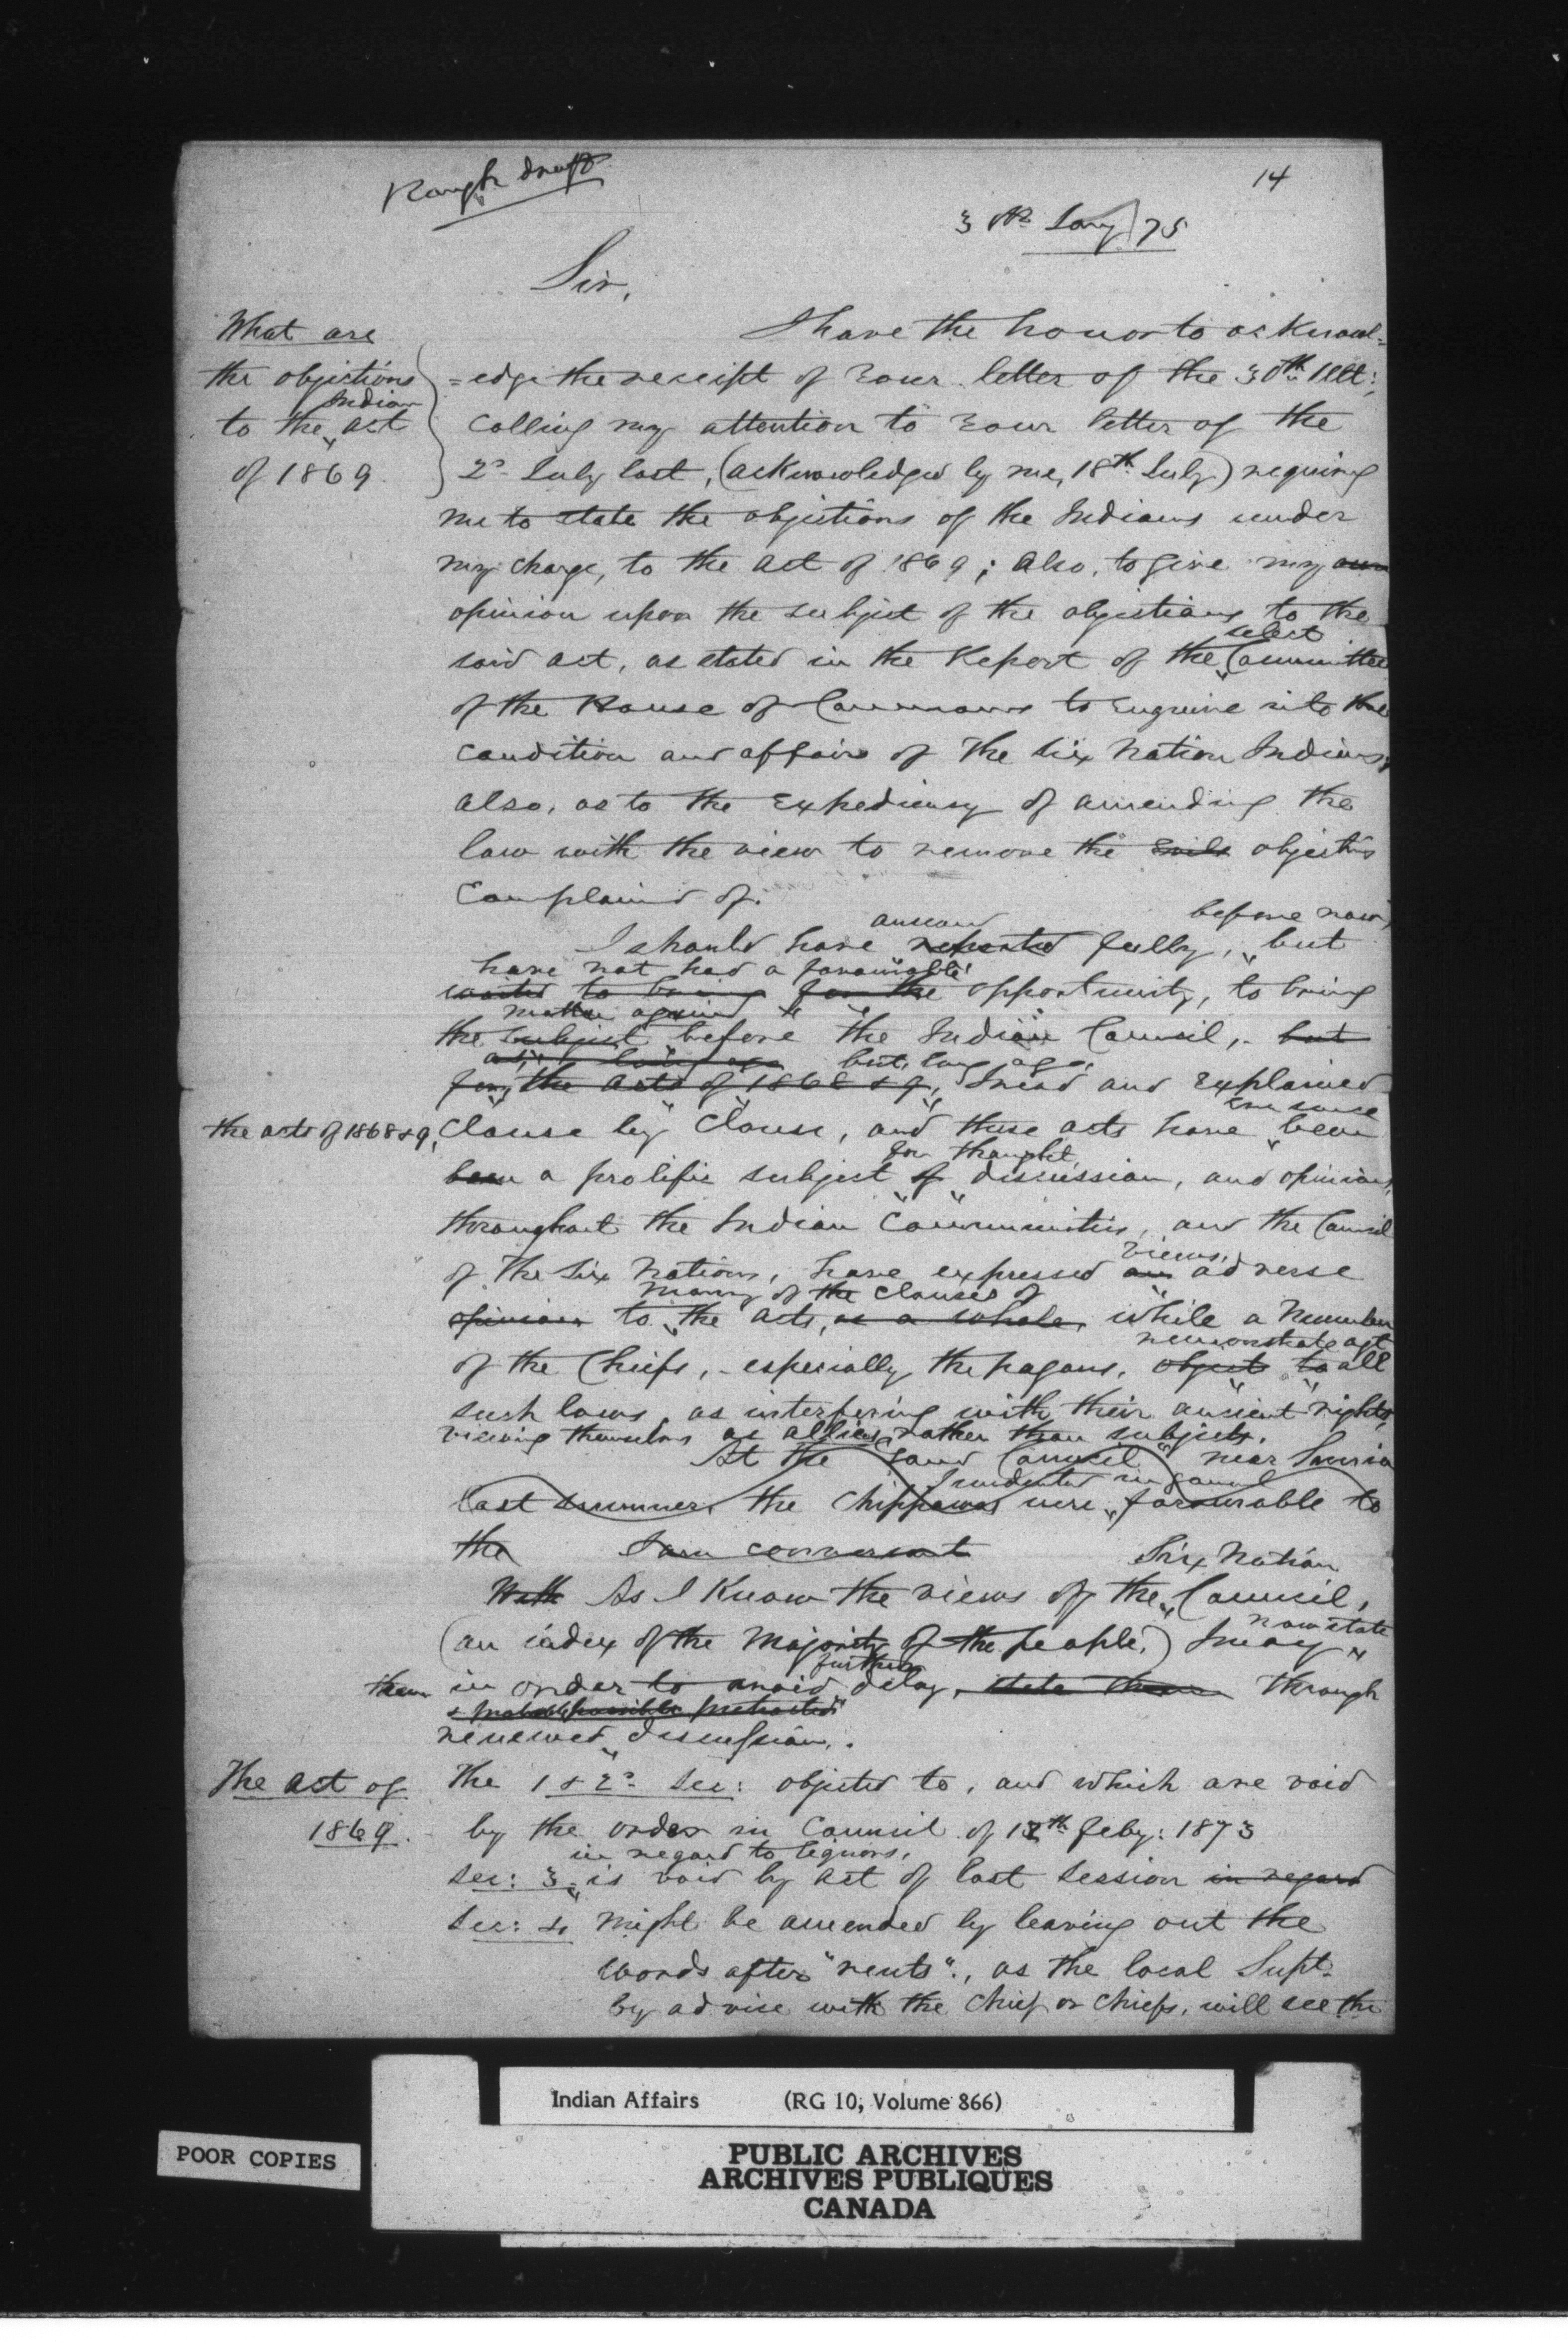 Rough draft
14
3 Jany/75
Sir,
What are
the objections
Indian
to the act
of 1869.
I have the honor to acknowl=
=edge the receipt of Your letter of the 30th Ult:
calling my attention to Your letter of the
2d July last, (acknowledged by me, 18th July) requiring
me to state the objections of the Indians under
my charge, to the act of 1869; also, to give my own
opinion upon the subject of the objections to the
select
said act, as stated in the Report of the Committee
of the House of Commons to Enquire into the
condition and affairs of the Six Nation Indians,
also, as to the Expediency of amending the
law with the view to remove the Evils objectns
Complained of.
before now,
I should have fully, but
have not had a favourable
waited to bring for the opportunity, to bring
matter again
the subject before the Indian Council, - but
but, long ago,
for, the acts of 1868 & 9, I read and Explained
the acts of 1868 & 9,
Clause by Clause, and these acts have been
for thought
been a prolific subject of discussion, and opinions,
throughout the Indian Communities, and the Council
views,
of the Six Nations, have expressed an adverse
many of the clauses of
opinion to the acts, as a whole, while a Number
remonstrate agt
of the Chiefs, - especially the pagans, object to all
such laws, as interfering with their ancient rights,
viewing themselves as allies, rather than subjects.
At the Grand Council near Sarnia
last summer, the Chippewas were favourable to
the I am conversant
Six Nation
With As I Know the views of the Council,
now state
(an index of the Majority of the people,) I may
further
them in order to avoid delay, state them through
& probably possible protracted
renewed discussion.
The act of
1869.
The 1 & 2d Sec: objected to, and which are void
by the order in Council of 12th Feby: 1873
in regard to liquors,
Sec: 3, is void by act of last Session in regard
Sec: 4, Might be amended by leaving out the
words after "rents"., as the local Supt.
by advise with the Chief or Chiefs, will see the
Indian Affairs (RG 10, Volume 866)
POOR COPIES
PUBLIC ARCHIVES
ARCHIVES PUBLIQUES
CANADA